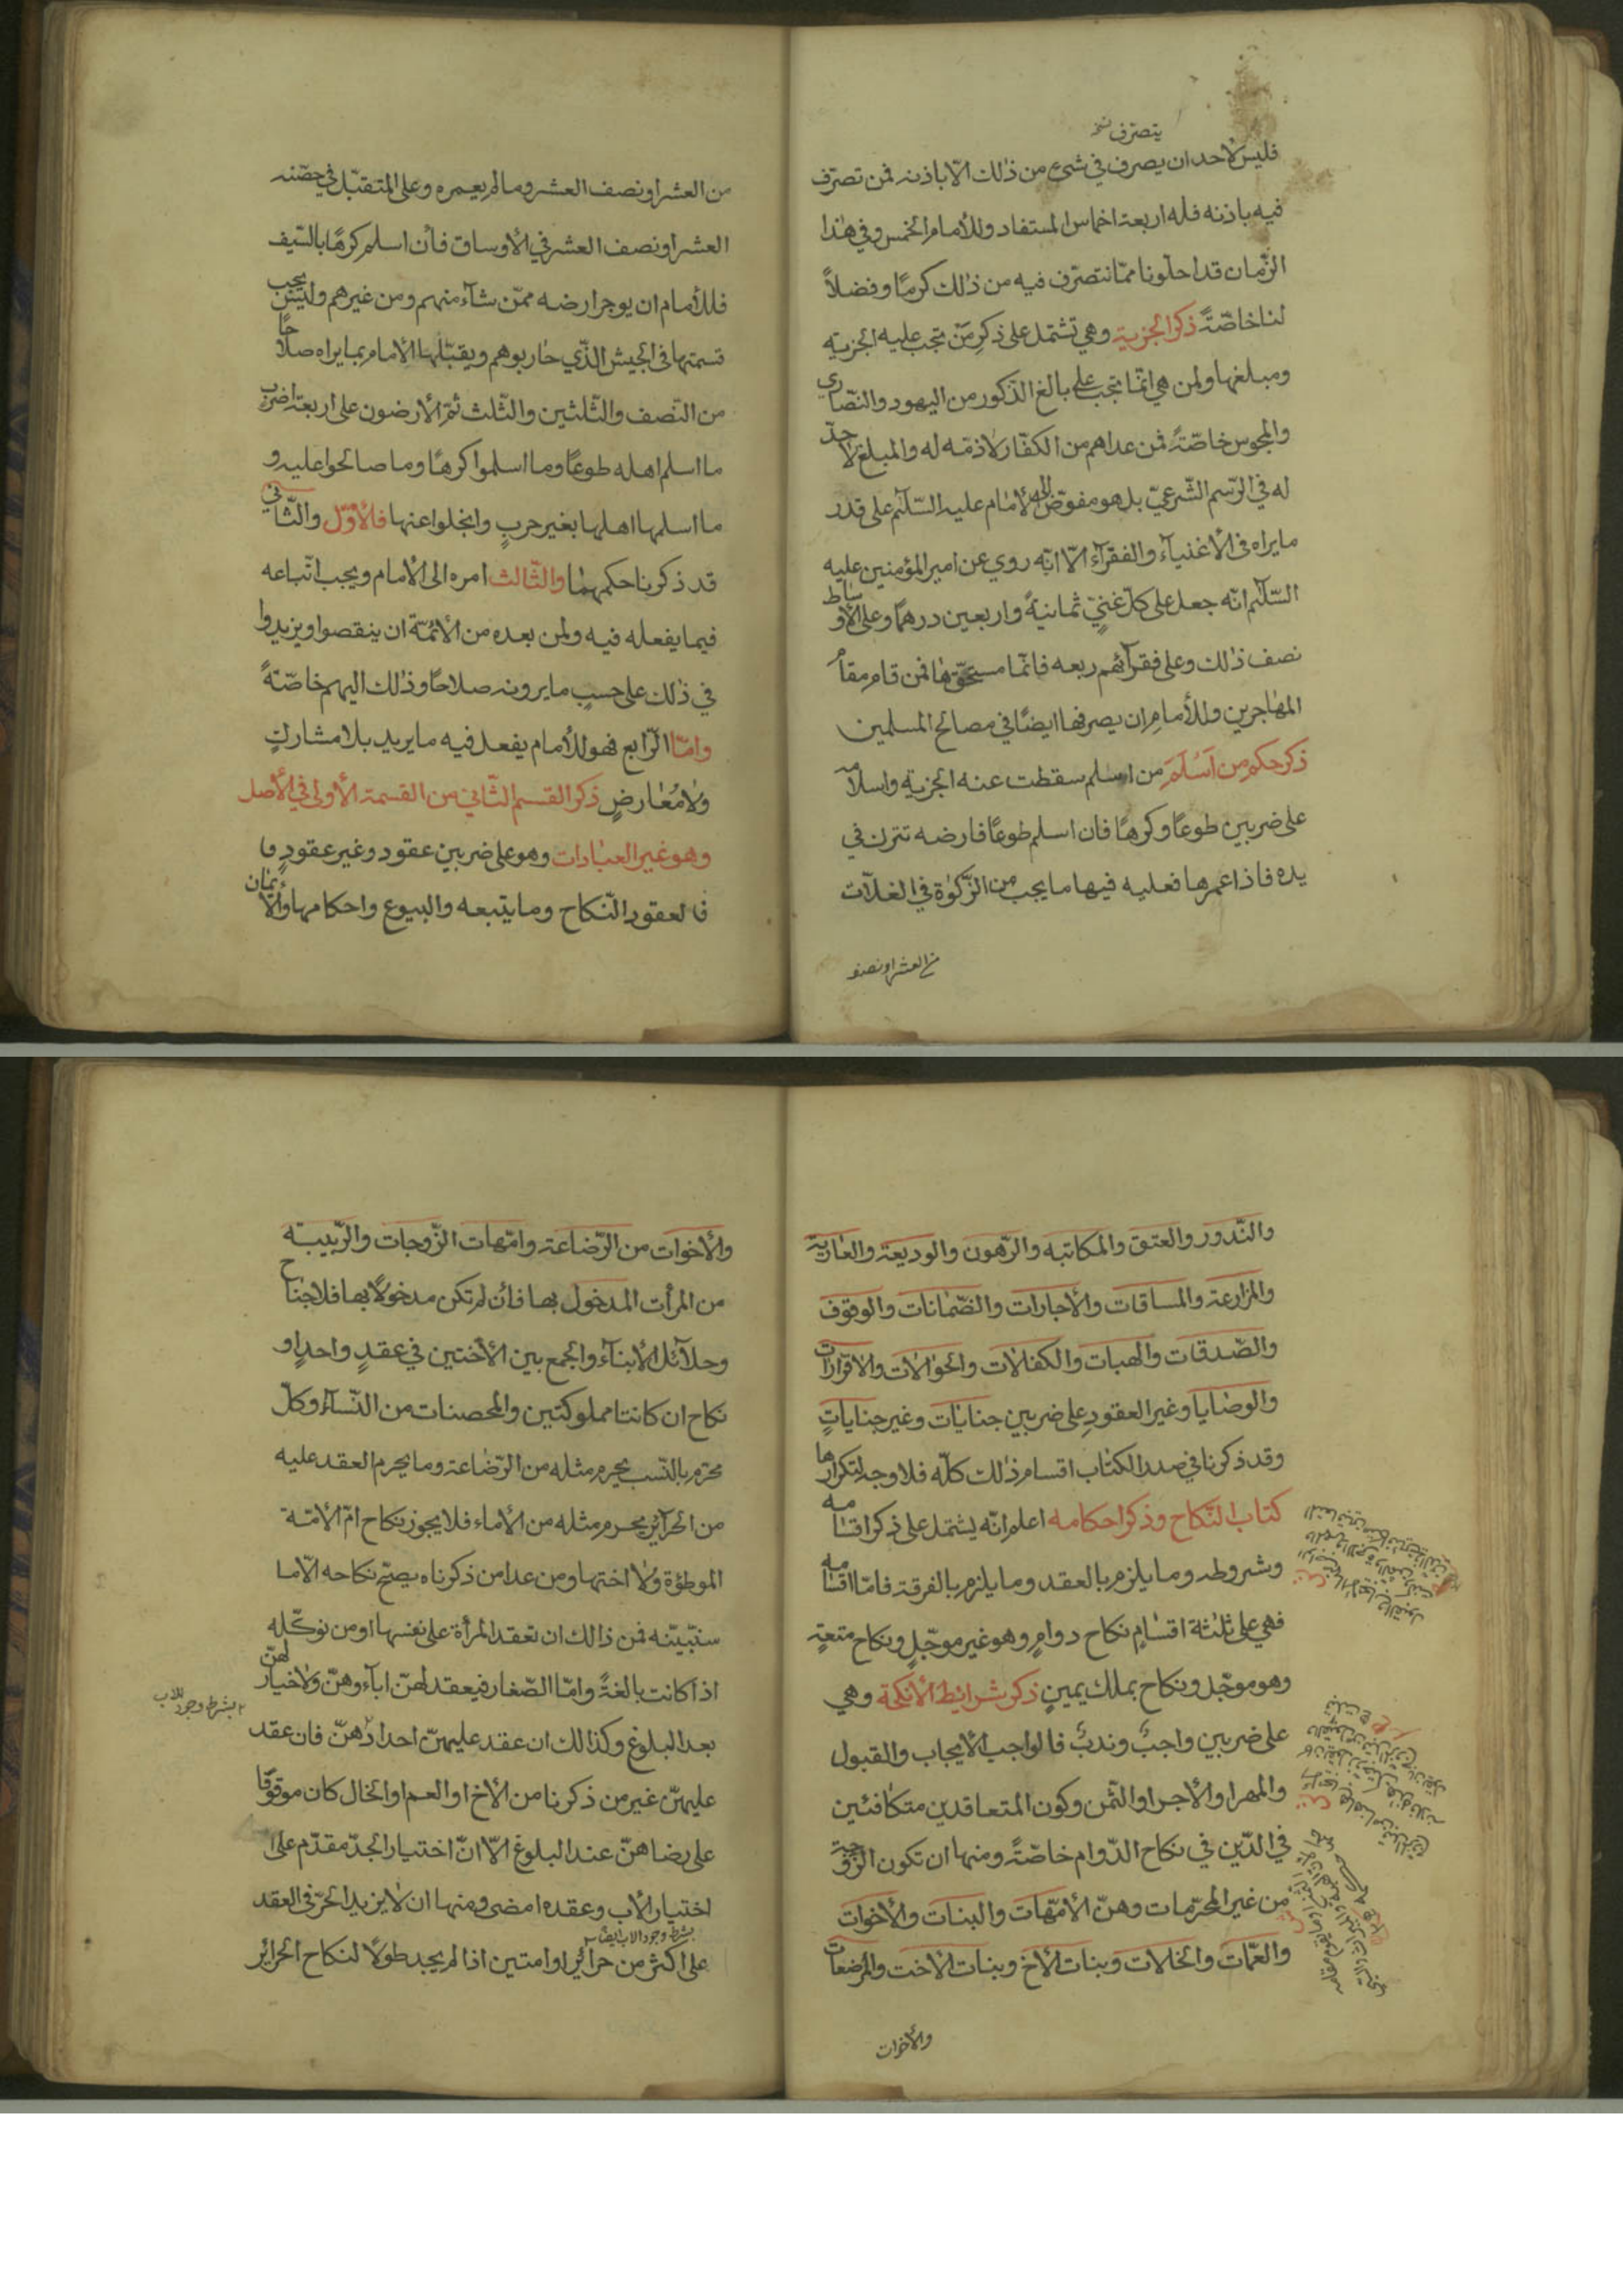 يتصرف نسخه
فليس لأحد ان يصرف في شئ من ذلك الّا باذنه فمن تصرّف
فيه باذنه فله اربعة اخماس المستفاد وللأمام الخمس وفي هذا
الزّمان قد احلّونا ممّا نتصرّف فيه من ذلك كرمًا وفضلاً
لنا خاصّةً ذكر الجزية وهي تشتمل على ذكر من تجب عليه الجزية
ومبلغها ولمن هي انّما تجب على بالغ الذّكور من اليهود والنّصارى
والمجوس خاصّةً فمن عداهم من الكفّار لا ذمّة له والمبلغ لا حدّ
له في الرّسم الشّرعيّ بل هو مفوّض الى الأمام عليه السّلام على قدر
ما يراه فى الأغنياء والفقرآء الّا انّه روي عن امير المؤمنين عليه
السّلام انّه جعل على كلّ غنيّ ثمانيةً واربعين درهمًا وعلى الأوساط
نصف ذلك وعلى فقرآئهم ربعه فامّا مستحقّها فمن قام مقام
المهاجرين وللأمام ان يصرفها ايضًا في مصالح المسلمين
ذكر حكم من اسلم من اسلم سقطت عنه الجزية واسلامه
على ضربين طوعًا وكرهًا فان اسلم طوعًا فارضه تترك في
يده فاذا عمرها فعليه فيها ما يجب من الزّكوة في الغلّات
من العشر او نصف
من العشر او نصف العشر وما لم يعمره وعلى المتقبّل في حصّته
العشر او نصف العشر في الأوساق فأن اسلم كرهًا بالسّيف
فللأمام ان يوجر ارضه ممّن شاء منهم ومن غيرهم وليس يجب
قسمتها فى الجيش الّذي حاربوهم ويقبّلها الأمام بما يراه صلاحًا
من النّصف والثّلثين والثّلث ثمّ الأرضون على اربعة اضرب
ما اسلم اهله طوعًا وما اسلموا كرهًا وما صالحوا عليه و
ما اسلمها اهلها بغير حربٍ وانجلوا عنها فالأوّل والثّاني
قد ذكرنا حكمهما والثّالث امره الى الأمام ويجب اتّباعه
فيما يفعله فيه ولمن بعده من الأئمّة ان ينقصوا ويزيدوا
في ذلك على حسبٍ ما يرونه صلاحًا وذلك اليهم خاصّةً
وامّا الرّابع فهو للأمام يفعل فيه ما يريد بلا مشاركٍ
ولا مُعارضٍ ذكر القسم الثّاني من القسمة الأولى في الأصل
وهو غير العبادات وهو على ضربين عقود وغير عقودٍ فا
فالعقود النّكاح وما يتبعه والبيوع واحكامها والأيمان
والنّذور والعتق والمكاتبه والرّهون والوديعة والعارية
والمزارعة والمساقات والأجارات والضّمانات والوقوف
والصّدقات والهبات والكفلات والحوالات والاقرارات
والوصايا وغير العقود على ضربين جنايات وغير جناياتٍ
وقد ذكرنا في صدر الكتاب اقسام ذلك كلّه فلا وجه لتكرارها
كتاب النّكاح وذكر احكامه اعلم انّه يشتمل على ذكر اقسامه
وشروطه وما يلزم بالعقد وما يلزم بالفرقة فامّا اقسامه
فهي على ثلثة اقسام نكاح دوامٍ وهو غير موجّلٍ ونكاح متعةٍ
وهو موجّل ونكاح بملك يمينٍ ذكر شرائط الأنكحة وهي
على ضربين واجبٌ وندبٌ فالواجب الأيجاب والقبول
والمهر او الأجر او الثّمن وكون المتعاقدين متكافئين
في الدّين في نكاح الدّوام خاصّةً ومنها ان تكون الزّوجة
من غير المحرّمات وهنّ الأمّهات والبنات والأخوات
والعمّات والخلات وبنات الأخ وبنات الأخت والمرضعات
والأخوات
والأخوات من الرّضاعة وامّهات الزّوجات والرّبيبة
من المرأت المدخول بها فأن لم تكن مدخولًا بها فلا جناح
وحلآئل الأبنآء والجمع بين الأختين في عقدٍ واحدٍ او
نكاح ان كانتا مملوكتين والمحصنات من النّسآء وكلّ
محرّم بالنّسب يحرم مثله من الرّضاعة وما يحرم العقد عليه
من الحرآئر يحرم مثله من الأماء فلا يجوز نكاح امّ الأمة
الموطؤة ولا اختها ومن عدا من ذكرناه يصحّ نكاحه الّا ما
سنّبيّنه فمن ذالك ان تعقد المرأة على نفسها او من توكّله
اذا كانت بالغةً وامّا الصّغار فيعقد لهنّ اباءوهنّ ولا خيار لهنّ
بشرط وجود الاب
بعد البلوغ وكذالك ان عقد عليهنّ اجدادهنّ فان عقد
عليهنّ غير من ذكرنا من الأخ او العم او الخال كان موقوفًا
على رضاهنّ عند البلوغ الّا انّ اختيار الجدّ مقدّم على
اختيار الأب وعقده امضى ومنها ان لا يزيد الحرّ فى العقد
بشرط وجود الاب ايضًا
على اكثر من حرائر او امتين اذا لم يجد طولًا لنكاح الحرائر